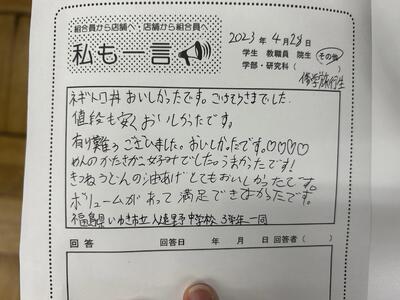 組合員から店舗へ・店舗から組合員へ
私も一言
2023年4月28日
学生 教職員 院生 その他
学部・研究科( )
修学旅行生
ネギトロ丼おいしかったです。ごちそうさまでした。
値段も安くおいしかったです。
有り難うございました。おいしかったです。♡♡♡♡
めんのかたさが好みでした。うまかったです!
きつねうどんの油あげとてもおいしかったです。
ボリュームがあって満足できよかったです。
福島県いわき市立入遠野中学校 3年生一同
回答 回答日 年 月 日 回答者( )